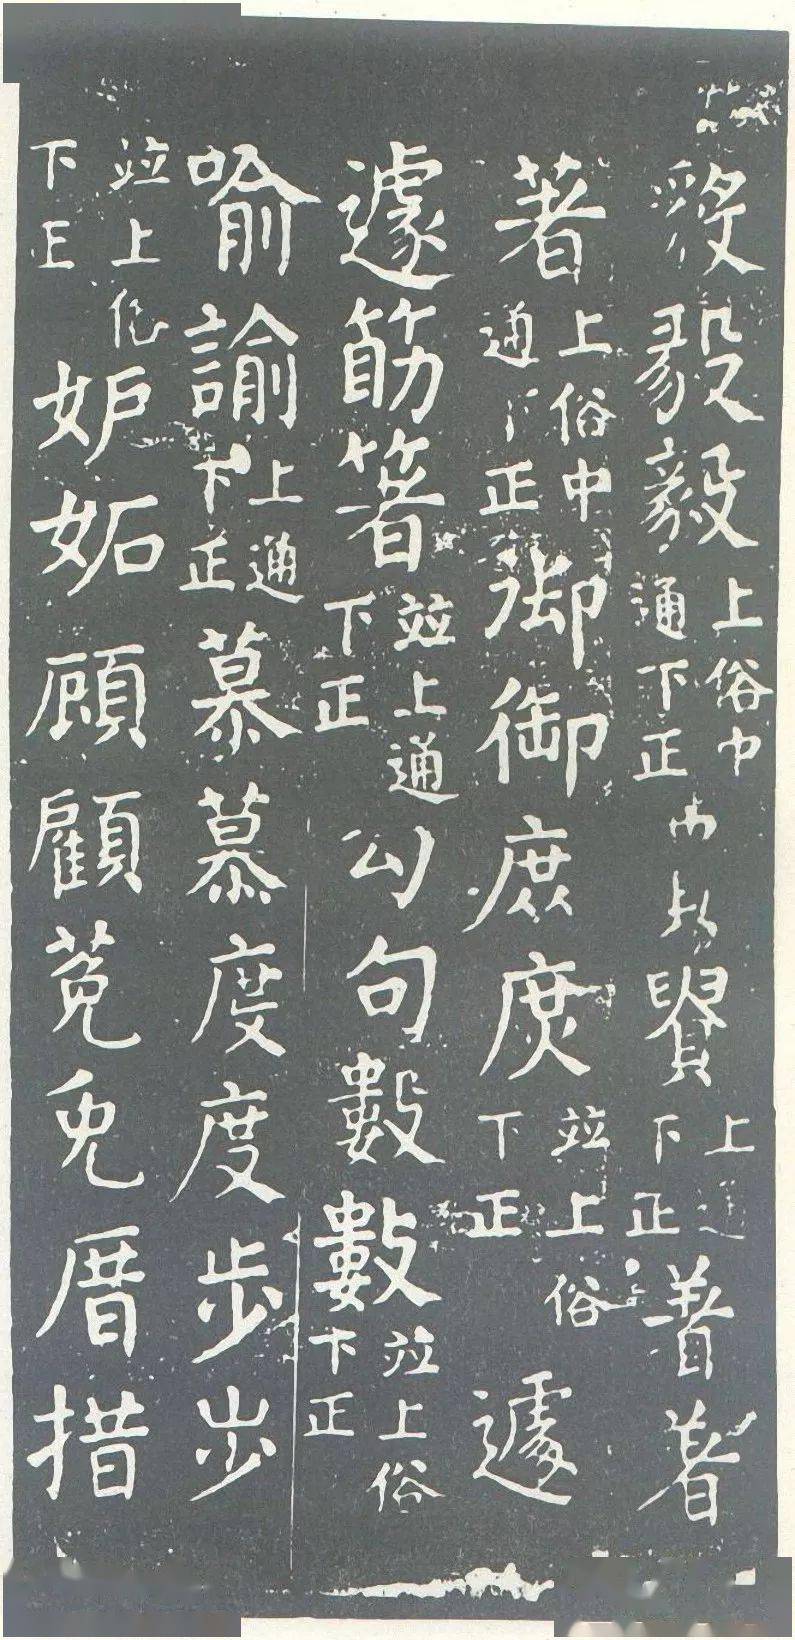 毅毅上俗中通下正貴上通下正著著
著上俗中通下正御御庶庶並上俗下正遽
遽筯箸並上通下正勾句數數並上俗下正
喻諭上通下正慕慕度度步步
並上俗下正妒妬顧顧莵兔厝措